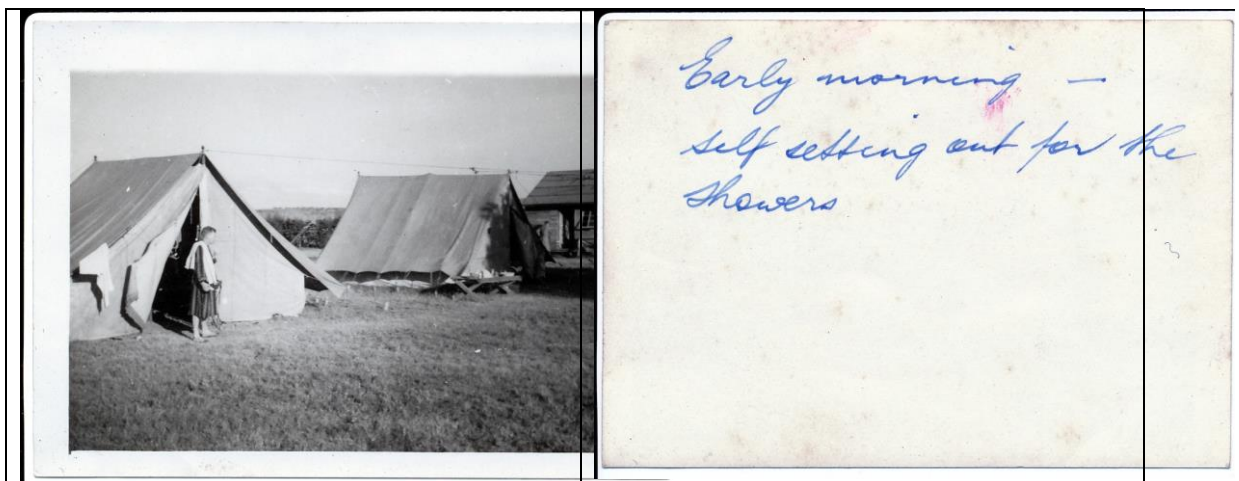 Early morning —
self setting out for the
showers